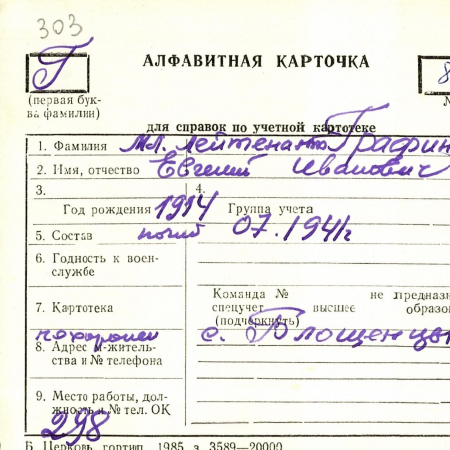 303
Г
АЛФАВИТНАЯ КАРТОЧКА
8
(первая бук-
ва фамилии)
для справок по учетной картотеке
1. Фамилия мл. лейтенант Графин
2. Имя, отчество Евгений Иванович
3. 4.
Год рождения 1914 Группа учета
5. Состав погиб 07.1941г
6. Годность к воен-
службе
Команда № не предназн
7. Картотека спецучет высшее образо
(подчеркнуть)
похоронен с. Блощенцы
8. Адрес -житель-
ства и № телефона
9. Место работы, дол-
жность и № тел. ОК
298
Б Церковь, гортип. 1985 з. 3589—20000